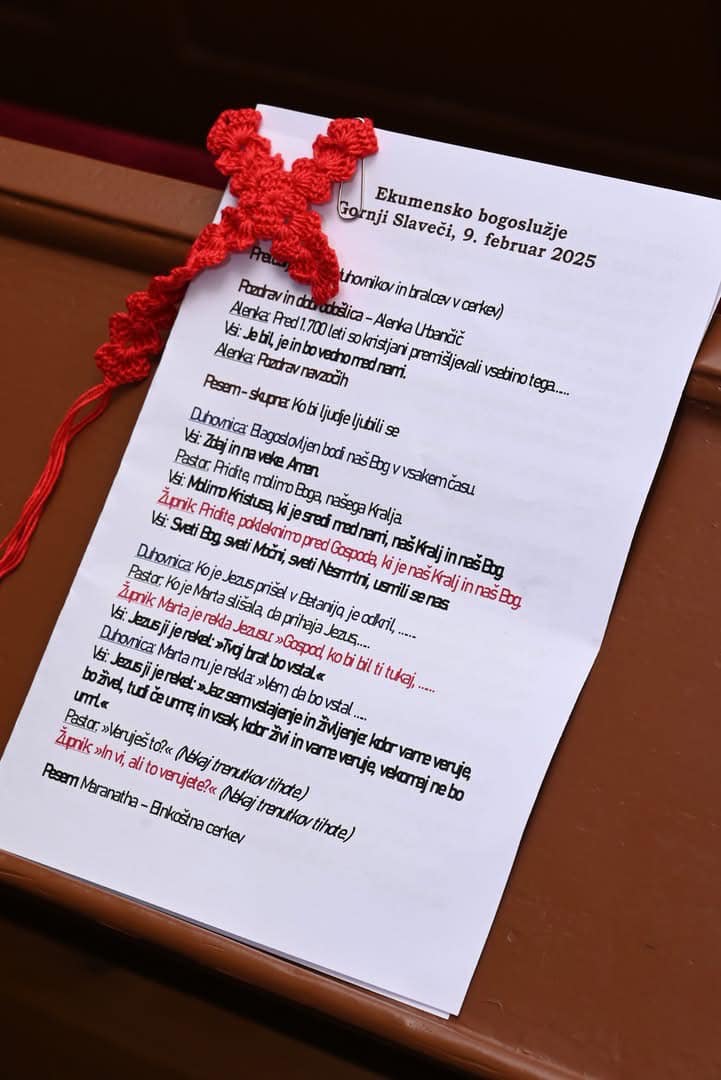 Ekumensko bogoslužje
Gornji Slaveči, 9. februar 2025
duhovnikov in bralcev v cerkev)
Pozdrav in dobrodošlica – Alenka Urbančič
Alenka: Pred 1.700 leti so kristjani premišljevali vsebino tega.....
Vsi: Je bil, je in bo vedno med nami.
Alenka: Pozdrav navzočih
Pesem - skupna: Ko bi ljudje ljubili se
Duhovnica: Blagoslovljen bodi naš Bog v vsakem času.
Vsi: Zdaj in na veke. Amen.
Pastor: Pridite, molimo Boga, našega Kralja.
Vsi: Molimo Kristusa, ki je sredi med nami, naš Kralj in naš Bog.
Župnik: Pridite, pokleknimo pred Gospoda, ki je naš Kralj in naš Bog.
Vsi: Sveti Bog, sveti Močni, sveti Nesmrtni, usmili se nas.
Duhovnica: Ko je Jezus prišel v Betanijo, je odkril, ......
Pastor: Ko je Marta slišala, da prihaja Jezus,....
Župnik: Marta je rekla Jezusu: »Gospod, ko bi bil ti tukaj, ......
Vsi: Jezus ji je rekel: »Tvoj brat bo vstal.«
Duhovnica: Marta mu je rekla: »Vem, da bo vstal ....
Vsi: Jezus ji je rekel: »Jaz sem vstajenje in življenje: kdor vame veruje,
bo živel, tudi če umre; in vsak, kdor živi in vame veruje, vekomaj ne bo
umrl.«
Pastor: »Veruješ to?« (Nekaj trenutkov tihote.)
Župnik: »In vi, ali to verujete?« (Nekaj trenutkov tihote.)
Pesem: Maranatha – Binkoštna cerkev